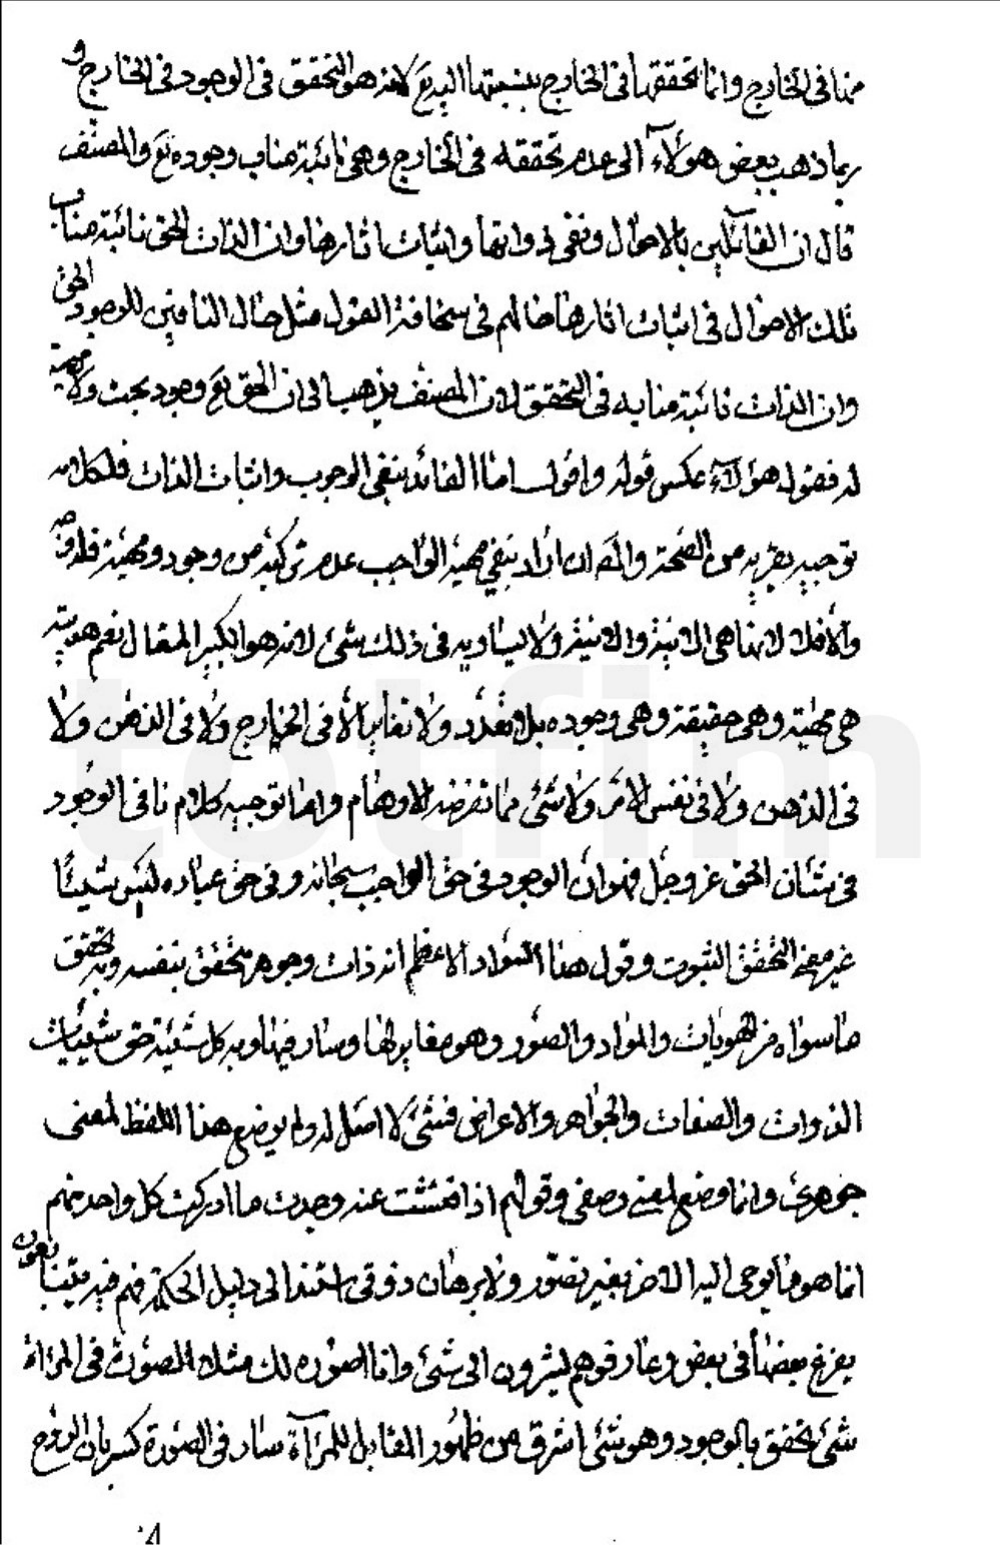 منها فى الخارج وانما تحققها فى الخارج بنسبتها اليه تع لانه هو المتحقق فى الوجود فى الخارج و
ربما ذهب بعض هولاء الى عدم تحققه فى الخارج وهى نائبة مناب وجوده تع والمصنف
قال ان القائلين بالاحوال ونفى ذواتها واثبات اثارها وان الذات الحق نائبة مناب
تلك الاحوال فى اثبات اثارها حالهم فى سخافة القول مثل حال النافين للوجود الحق
وان الذات نائبة منابه فى التحقق لان المصنف يذهب الى ان الحق تع وجود بحت ولا مهية
له فقول هؤلاء عكس قوله واقول اما القائل بنفى الوجوب واثبات الذات فلكلامه
توجيه يقربه من الصحة والمص ان اراد بنفى مهية الواجب عدم تركبه من وجود ومهية فله وجه
والا فلا لانها هى الانية والانية ولا يساويه فى ذلك شئ لانه هو الكبير المتعال نعم هويته
هى مهيته وهى حقيقته وهى وجوده بلا تعدد ولا تغاير لا فى الخارج ولا فى الذهن ولا
فى الذهن ولا فى نفس الامر ولا شئ مما تفرضه الاوهام واما توجيه كلام نافى الوجود
فى شان الحق عز وجل فهو ان الوجود فى حق الواجب سبحانه وفى حق عباده ليس شيئا
غير معنى التحقق الثبوت وقول هذا السواد الاعظم انه ذات وجوهر متحقق بنفسه وبه تحقق
ما سواه من الهويات والمواد والصور وهو مغاير لها وسار فيها وبه كل شيئية حتى شيئيات
الذوات والصفات والجواهر والاعراض فشئ لا اصل له ولم يوضع هذا اللفظ لمعنى
جوهرى وانما وضع لمعنى وصفى وقولهم اذا فتشت عنه وجدت ما ادركت كل واحد منهم
انما هو ما يوحى اليه الاخر بغير تصور ولا برهان ذوقى استند الى دليل الحكمة فهم فيه يتتابعون
يفرغ بعضها فى بعض وعارفوهم يشيرون الى شئ وانا اصوره لك مثلا الصورة فى المراة
شئ تحقق بالوجود وهو شئ اشرق من ظهور المقابل للمرآة سار فى الصورة كسريان الروح